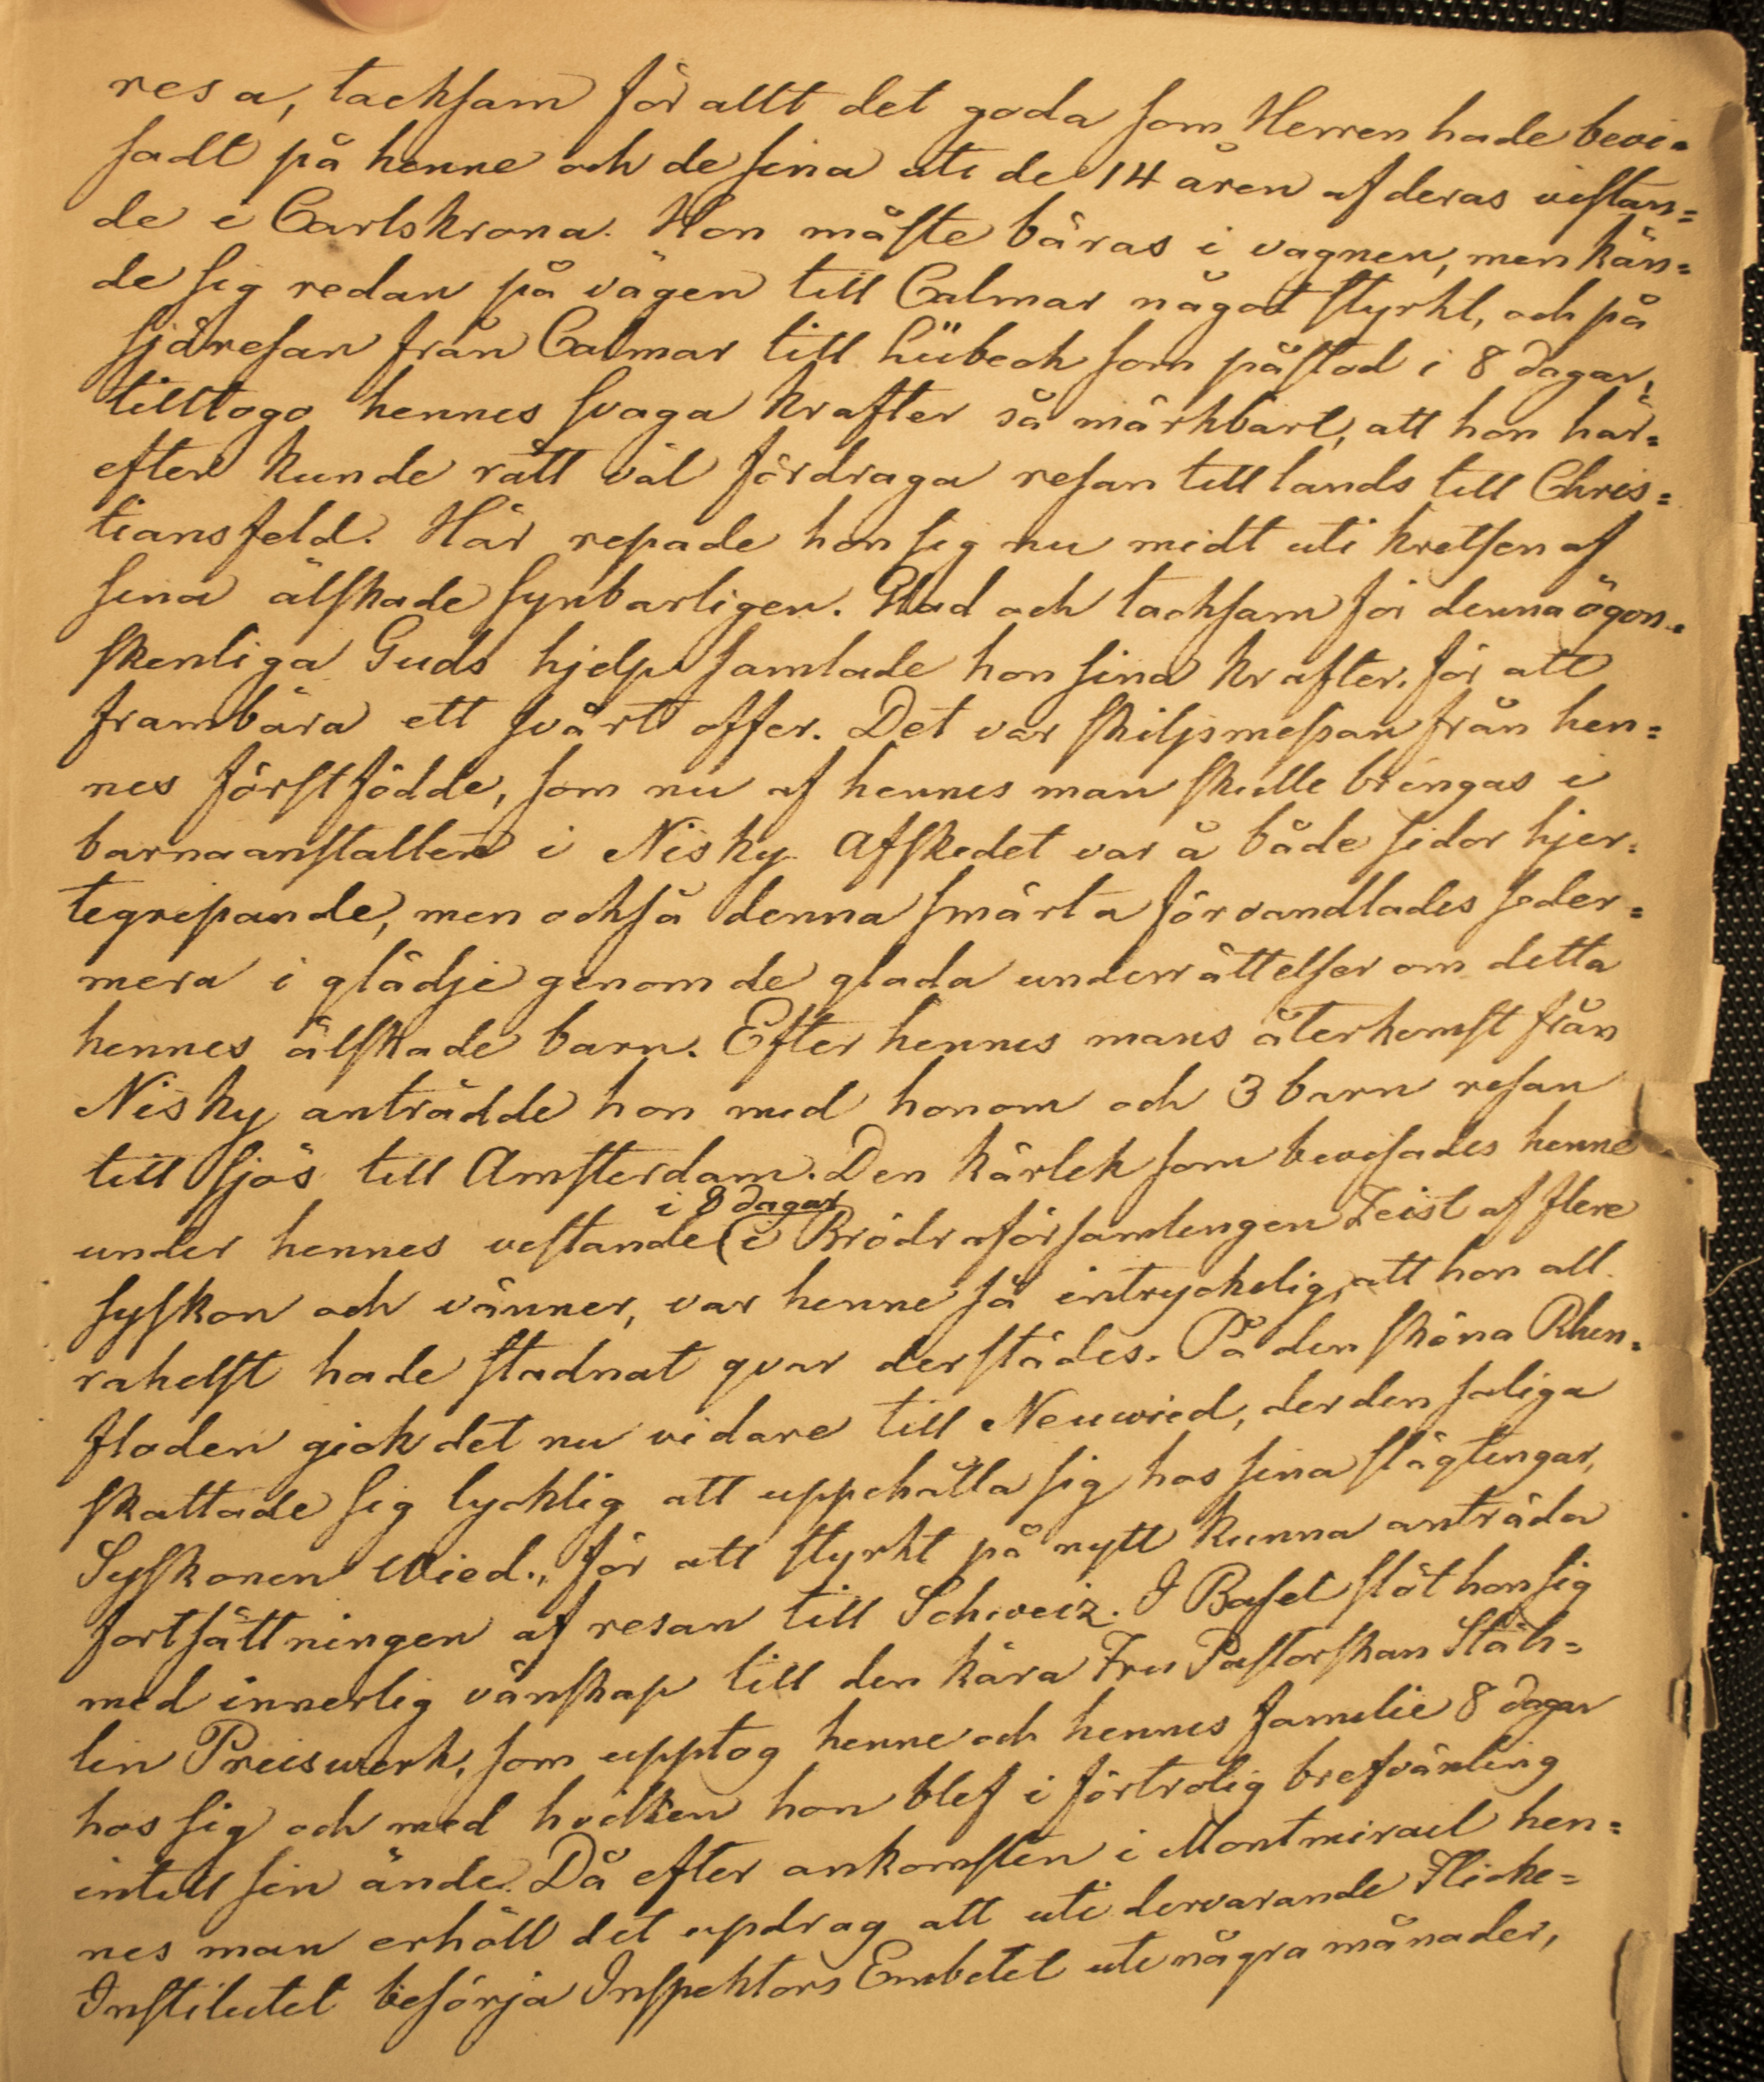 resa, tacksam för allt det goda som Herren hade bevi=
sadt på henne och de sina uti de 14 åren af deras vistan=
de i Carlskrona. Hon måste bäras i vagnen, men kän=
de sig redan på vägen till Calmar något styrkt, och på
sjöresan från Calmar till Lübeck som påstod i 8 dagar,
tilltogo hennes svaga krafter så märkbart, att hon här=
efter kunde rätt väl fördraga resan till lands till Chris=
tiansfeld. Här repade hon sig nu midt uti kretsen af
sina älskade synbarligen. Glad och tacksam för denna ögon=
skenliga Guds hjelp samlade hon sina krafter, för att
frambära ett svårt offer. Det var skilsmessan från hen=
nes förstfödde, som nu af hennes man skulle bringas i
barnaanstalten i Nisky. Afskedet var å både sidor hjer=
tegripande, men också denna smärta förvandlades seder=
mera i glädje genom de glada underrättelser om detta
hennes älskade barn. Efter hennes mans återkomst från
Nisky anträdde hon med honom och 3 barn resan
till sjös till Amsterdam. Den kärlek som bevisades henne
i 8 dagar
under hennes vistande (i Brödraförsamlingen Zeist af flere
syskon och vänner, var henne så intryckelig, att hon all
rahelst hade stadnat qvar derstädes. På den sköna Rhen=
floden gick det nu vidare till Neuwied, der den saliga
skattade sig lycklig att uppehålla sig hos sina slägtingar,
Syskonen Wied., för att styrkt på nytt kunna anträda
fortsättningen af resan till Schweiz. I Basel slöt hon sig
med innerlig vänskap till den kära Fru Pastorskan Stäh=
lin Preiswerk, som upptog henne och hennes familie 8 dagar
hos sig och med hvilken hon blef i förtrolig brefväxling
intill sin ände. Då efter ankomsten i Montmirail hen=
nes man erhöll det updrag att uti dervarande Flicke=
Institutet besörja Inspektors Embetet uti några månader,